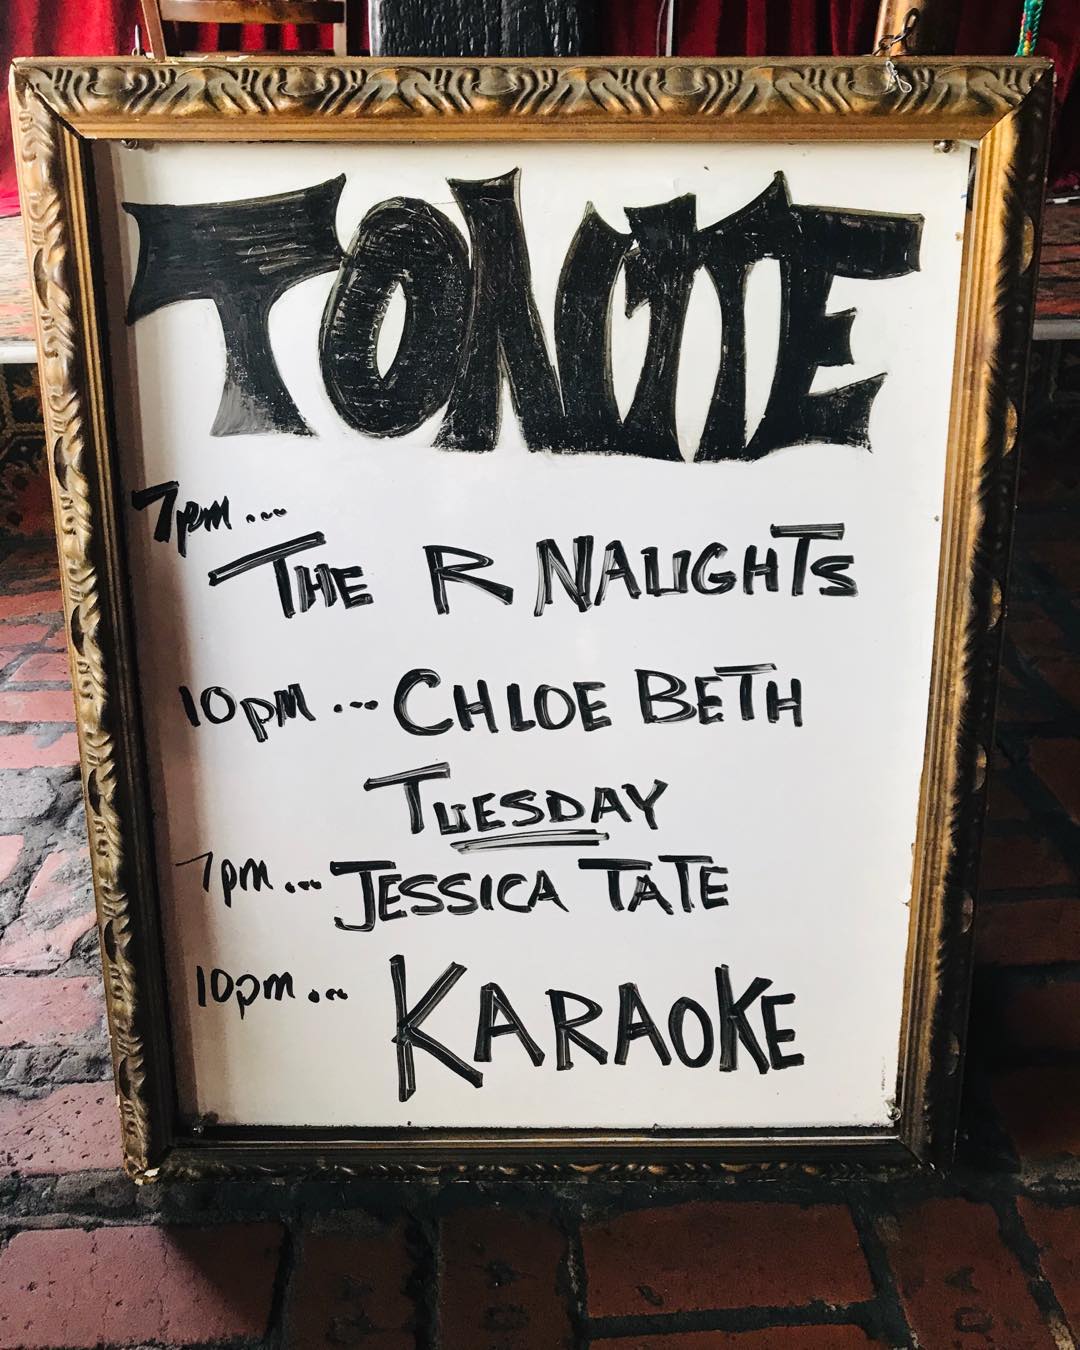 TONITE
7pm...
THE R NAUGHTS
10pm... CHLOE BETH
TUESDAY
7pm... JESSICA TATE
10pm... KARAOKE